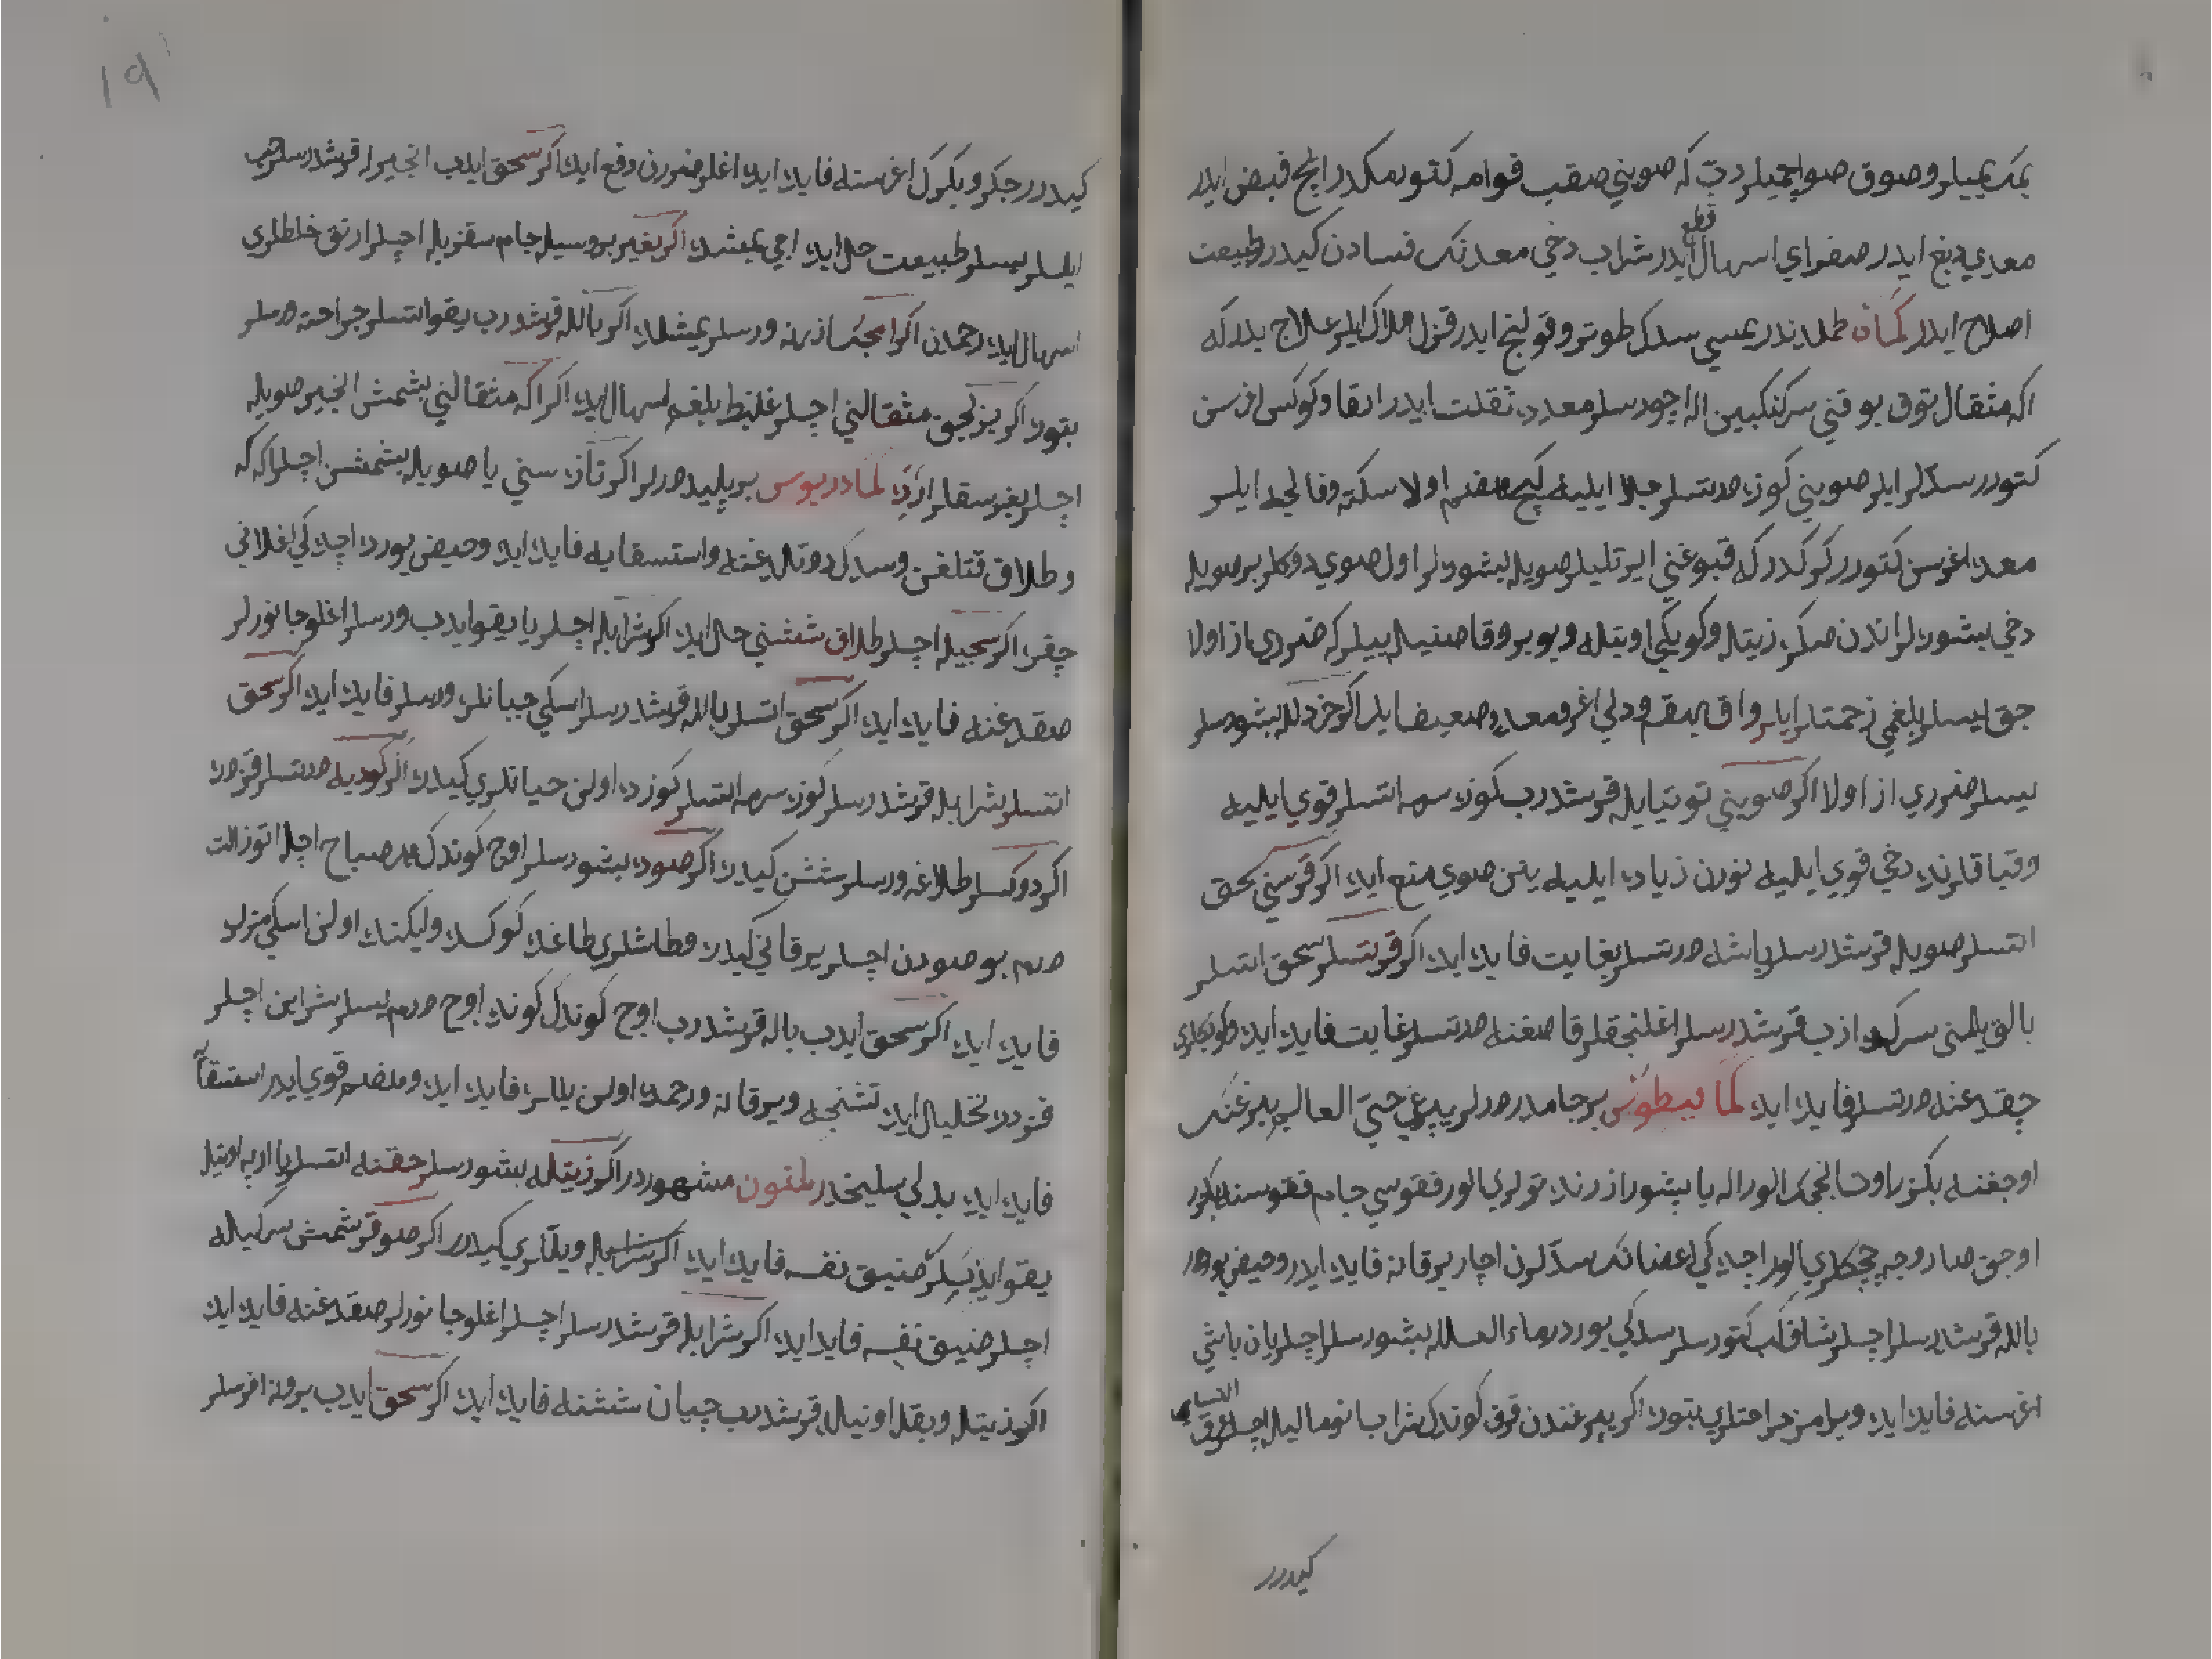 يمك يمييلر وصوق صو اچميلر دپ كه صويني صقب قوامه كتورمكدر ايچ قبض ايدر
معدي دبغ ايدر صفراي اسهال قطع ايدر شراب دخي معدنك فسادن كيدر طبيعت
اصلاح ايدر كماة طملاندر يمسي سدك طوتر وقولنج ايدر قزل هلاك ايلر علاج بلدر كه
اكه مثقال توق بوقني سركنكبين اله اچورسلر معدده ثقلت ايدر انقا وكوكس اغرسن
كتورر سدلر ايلر صويني كوزه صرتسلر جلا ايليه كيج هضم اولا سكته وفالج ايلر
معده اغرسن كتورر كركدر كه قبوغني ايرتليلر صويله پشورلر اول صوي دوكلر بر صويله
دخي پشورلر اندن صكره زيتله وكويكي اوتيله وبوبر وقاصنيله ييلر كه ضرري از اولا
جق ايسلر بلغمي زحمتلر ايلر واق يقم ودلي اغر ومعده وصعيف ايلر اكر خردله پشورسلر
يسلر ضرري از اولا اكر صويني توتيايله قرشدرب كوزه سرمه اتسلر قوي ايليه
وقباقلرنده دخي قوي ايليه نورن زياده ايليه ينن صوي منع ايده اكر قرسني سحق
اتسلر صويله قرشدرسلر باشه صرتسلر بغايت فايده ايده اكر قرتسلر سحق اتسلر
بالق يلمنى سركه ازب قرشدرسلر اغلنجقلر قاصغنه صرتسلر غايت فايده ايده وطونجلري
چقدغنه صرتسلر فايده ايده كما بيطوس بر جامدر درلر پيپرغي حيّ العالم يپرغنك
اوجغنه بكزر اوحا الجك الور اله يا پشور ازرنده تولري الور ققوسي جام ققوسنه بكزر
اوجق صارو جه چچكلري الور اچده كي اعضانك سدلرن اچار يرقانه فايده ايدر وحيض يورر
بالله قرشدرسلر اچسلر شاقلب كتورسلر سدكي يوردر ماء العسلله پشورسلر اچلر يان باشي
اغرسنه فايده ايده ويرامز جراحتلري بتوره اكر يپرغندن قرق كوندك شراب انومماليله اچلر عرق النساي
كيدرر
١٩
كيدرر جكر وبكرك اغرسنه فايده ايده اغلر ضررن دفع ايده اكر سحق ايدب انجيرله قرشدرسلر حب
ايلسلر يسلر طبيعت حل ايده اجي يمشده اكر بغير بروسيله جام سقزيله اچسلر ارتق خلطلري
اسهال ايده رحمدن اكر امجك ازرنه ورسلر يمشده اكر بالله قرشدرب يقو اتسلر جراحته ورسلر
بتوره اكر يز لجق مثقالني اچلر غليظ بلغم اسهال ايده اكر اكه مثقالني پشمش انجير صويله
اچلر بغرسقلر ارده كمادريوس بر يليدرلر اكر تازه سني يا صويله پشمشن اچلر اكه كه
وطلاق قتلغن وسدك دوتلدغنه واستسقايه فايده ايده وحيض يورده اچده كي اغلاني
چقره اكر سجيله اچسلر طلاق ششني حل ايده اكر شرابله اچلر يا يقو ايدب ورسلر اغلو جانورلر
صقدغنه فايده ايده اكر سحق اتسلر بالله قرشدرسلر اسكي چبانلره ورسلر فايده ايده اكر سحق
اتسلر شرابله قرشدرسلر كوزه سرمه اتسلر كوزده اولن حيانلري كيدره اكر كوديه صرتسلر قزدره
اكر دوكسلر طلاغه ورسلر ششن كيدره اكر صوده پشورسلر اوج كوندك هر صباح اچلا اتوز الت
درم بو صودن اچسلر يرقاني كيدره وطاشلري طاغده كوكسده وليكنده اولن اسكي مزلر
فايده ايده اكر سحق ايدب باله قرشدرب اوج كوندك كونده اوج درم يسلر شرابن اچلر
قزدرد تحليل ايده تشنجه ويرقانه ورحمده اولن يللره فايده ايده وهضم قوي ايدر استسقاء
فايده ايده بدلي سليخه در لمتون مشهوردر اكر زيتله پشورسلر حقنه اتسلر يا اربه اونيله
يقو ايدسلر ضيق نفسه فايده ايده اكر شرابله ويللري كيدره اكر صو قرشمش سركيله
اچسلر ضيق نفسه فايده ايده اكر شرابله قرشدرسلر اچسلر اغلو جانورلر صقدغنه فايده ايده
اكر زيتله وبقلا اونيله قرشدرب چبان ششنه فايده ايده اكر سحق ايدب برونه افرسلر